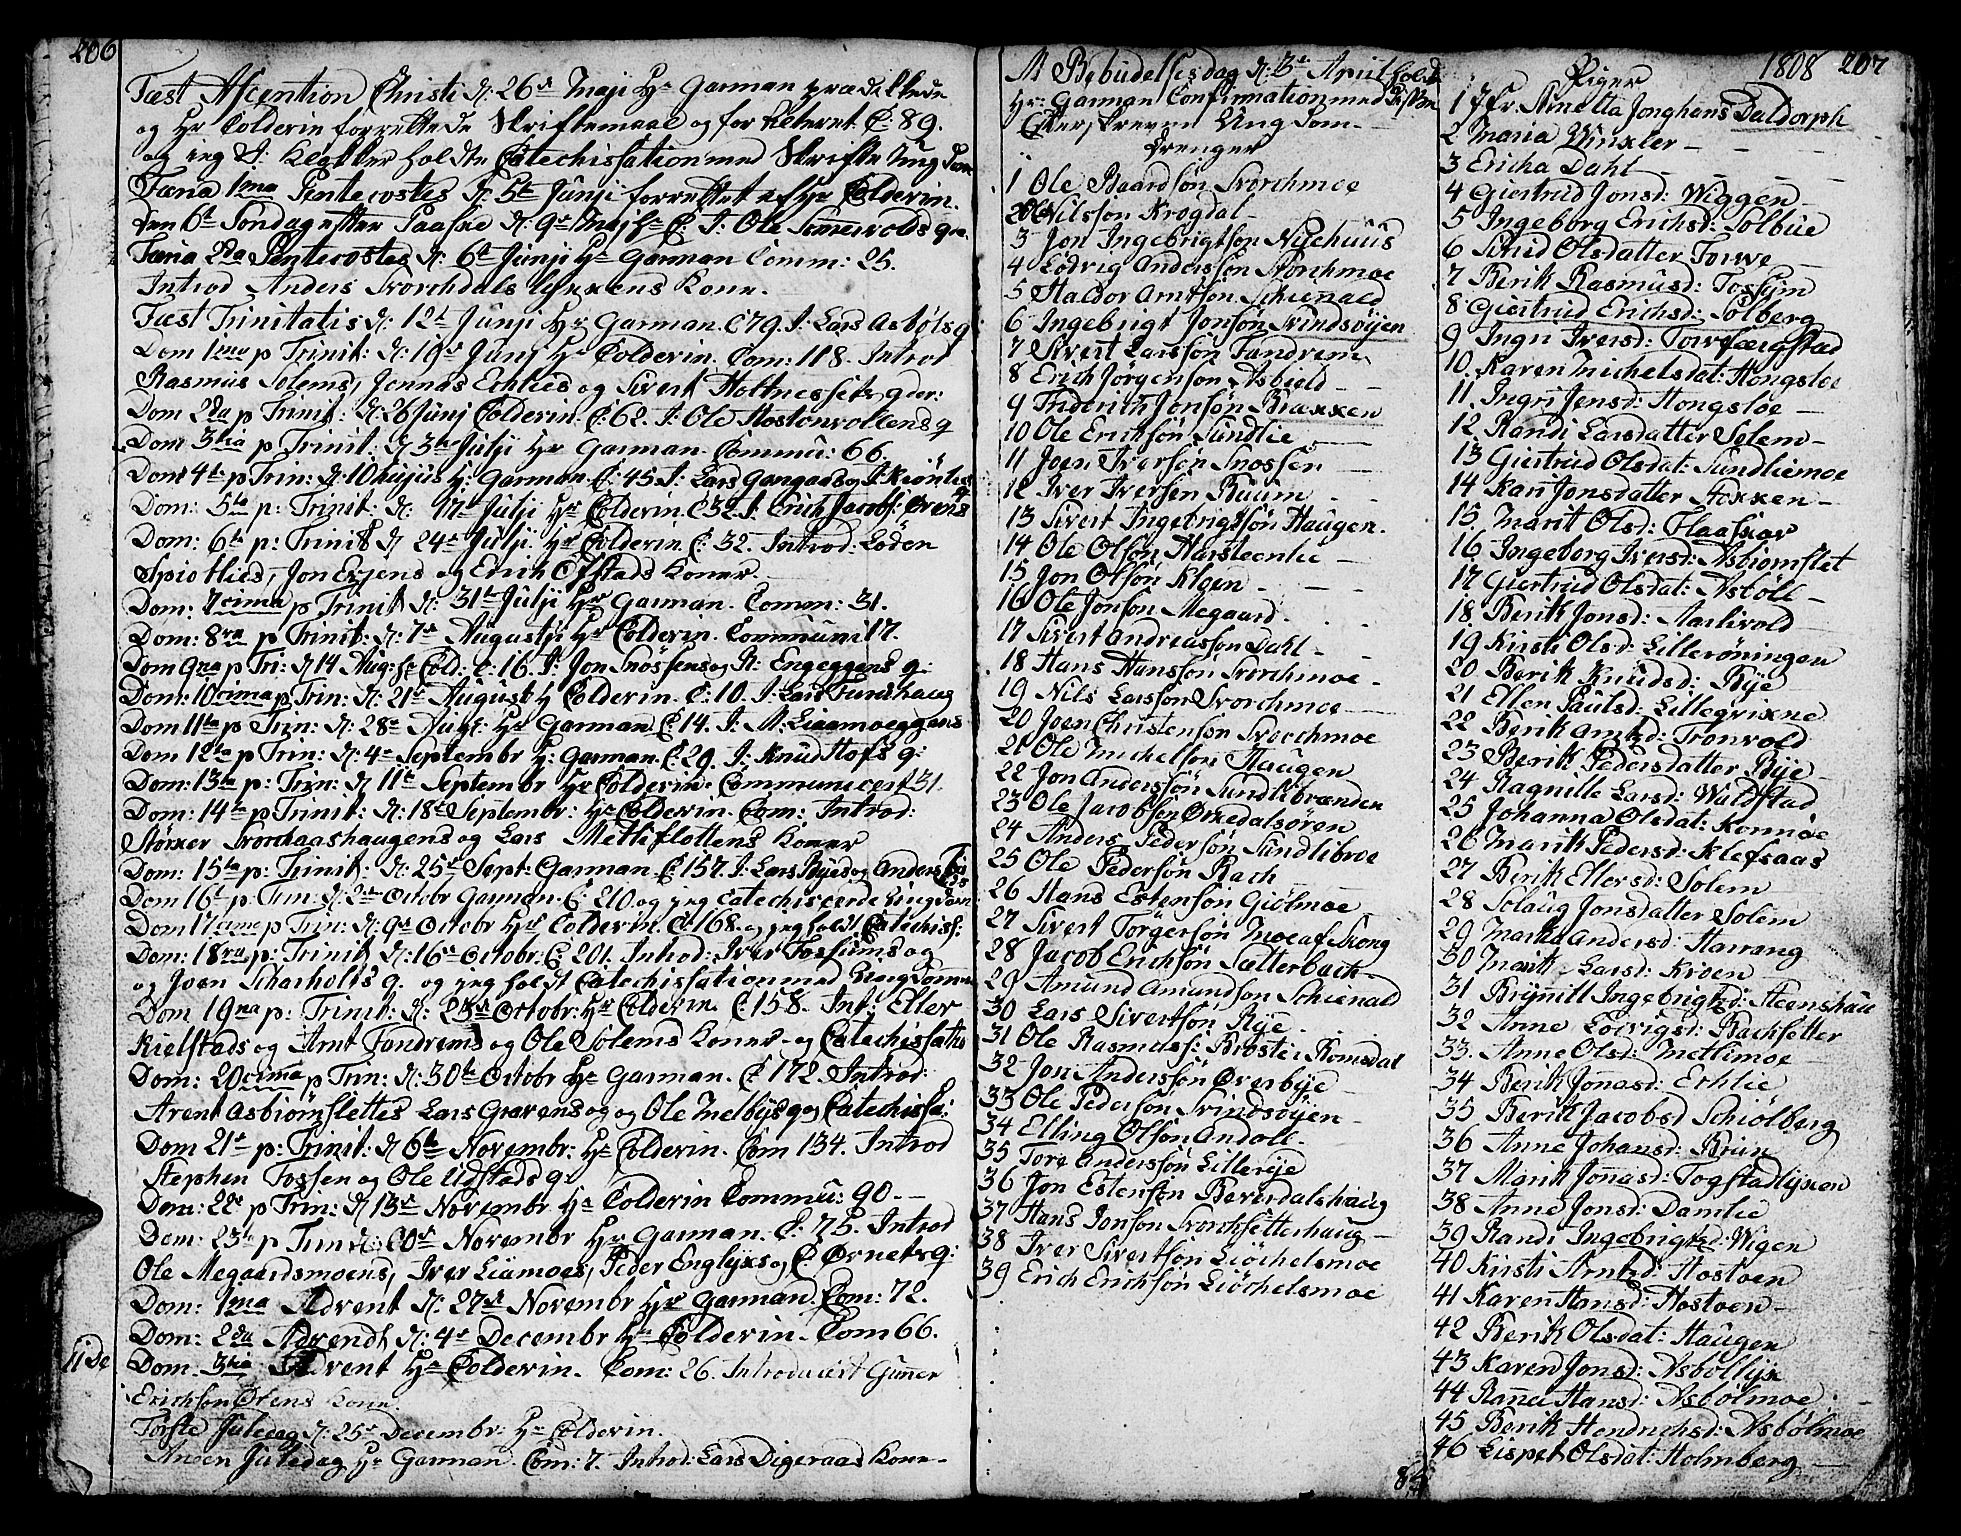 206
Fæst Ascention Christi d: 26de Maji Hr Garman prædikkede
og Hr Colderin forrettede Skriftemaal og for Alteret C: 89.
og jeg holdte Catechisation med Ungdom
Færia 1ma Pentecostes d: 5te Junji forrettet af Hr Colderin.
den 6te Søndag efter Paaske d: 9de C: I: Ole
Færia 2da Pentecostes d: 6te Junji Hr Garman Comm: 25.
Introd Anders Storchdals Kone.
Fæst Trinitatis d: 12te Junji Hr Garman. C 79. I: Lars Asbøls q
Dom 1ma p Trinit: d: 19de Junj Hr Colderin. Com: 118. Introd
Rasmus Solems, Jonnas Echlies og Sivert q
Dom 2da p Trinit: d: 26 Junj Colderin. C: 62. I: Ole Hostonvollens q
Dom 3tia p Trinit: d 3die Julji Hr Garman. Commu: 66.
Dom 4te p Trin: d: 10 hujus Hr Garman. C: 45 I: Lars
Dom: 5ta p: Trinit: d: 17de Julji Hr Colderin. C 32. I: Erich Jacobs: Ørens
Dom: 6ta p: Trinit d 24de Julji Hr Colderin. C: 32. Introd: Loden
Spiotlies, Jon og Erich Koner.
Dom: 7cima p Trinit d: 31te Julji Hr Garman. Comm: 31.
Dom: 8va p Trinit: d: 7de Augustji Hr Colderin. Communi 17.
Dom 9na p Tri: d 14 Aug: Hr Cold: C: 16. I: Jon Snossens og R: Engeggens q:
Dom: 10cima p Trin: d: 21de August H Colderin. C: 10. I: Lars Sundhaug
Dom 11ta p Trin: d: 28de Aug: Hr Garman. C: 14. I: M:
Dom 12ta p Trin: d: 4de Septembr H: Garman. C: 29. I: Knud Hofs q:
Dom: 13ta p: Trin: d 11te Septembr Hr Colderin. Communicert 31.
Dom: 14ta p Trinit: d: 18de Septembr: Hr Colderin. Com: Introd:
Størker Storchaashaugens og Lars Metliflottens Koner
Dom: 15ta p: Trinit: d: 25de Sept: Garman. C: 157. I: Lars Ryes og Anders
Dom 16t p: Trin: d: 2den Octobr Garman. C: 210 og jeg Catechiscerde Ungdom
Dom 17cima p Trin: d: 9de Octobr Hr Colderin. C: 168. og jeg holdt Catechiss:
Dom: 18va p: Trinit d: 16de Octobr: C: 201. Introd: Iver Fossums og
og Joen Scharholts q. og jeg holdt Catechisation med Ungdommen
Dom 19na p: Trinit: d: 23de Octobr: Hr Colderin. C: 158. Int: Eller
Kielstads og Arnt Fandrems og Ole Solems Koner og Catechisatio
Dom: 20cima p Trin: d: 30te Octobr Hr Garman. C: 172. Introd:
Arent Asbiønslettes Lars Gravens og og Ole Melbys q og Catechissa:
Dom 21de p: Trinit: d 6te Novembr: Hr Colderin. Com 134. Introd
Stephen Fossen og Ole Udstads q
Dom: 22de p Trin: d 13de Novembr Hr Colderin Commu: 90.
Dom: 23ta p Trin d: 20de Novembr Hr Garman. C: 75. Introd
Ole Megaardsmoens, Iver Liamoes, Peder Englyks og C: Ørnets q:
Dom: 1ma Advent d: 27de Novembr Hr Garman. Com: 72.
Dom: 2da Advendt d: 4de Decembr Hr Colderin. Com 66.
11 De Dom. 3tia Advent Hr Colderin. Com: 26. Introducert Guner
Erichson Ølens Kone.
Første Juledag d: 25de Decembr: Hr Colderin.
Anden Juledag Hr Garman. Com: 7. Introd: Lars Digeraas Kone
M Bebudelsesdag d: 3de April holdt
Hr: Garman Confirmation med
Efterskreven Ungdom
Drenger
1 Ole Baardsøn Storchmoe
2 Ole Nilssøn Krogdal
3 Jon Ingebrigtsøn Nyehuus
4 Lodvig Anderssøn Storchmoe
5 Haldor Arntsøn Schienald
6 Ingebrigt Jonsøn Svindsøyen
7 Sivert Larssøn Fandrem
8 Erich Jørgensøn Asbiøld
9 Friderich Jonsøn Brækken
10 Ole Erichsøn Sundlie
11 Joen Iversøn Snossen
12 Iver Iversøn Buum
13 Sivert Ingebrigtsøn Haugen.
14 Ole Olsøn Harsteenlie
15 Jon Olsøn Kløen
16 Ole Jonsøn Megaard
17 Sivert Andreassøn Dahl
18 Hans Hanssøn Storchmoe
19 Nils Larssøn Storchmoe
20 Joen Christensøn Storchmoe
21 Ole Michelsøn Haugen
22 Jon Anderssøn Sundlibrænden
23 Ole Jacobsøn Ørkedalsøren
24 Anders Pedersøn Sundlibroe
25 Ole Pedersøn Rach
26 Hans Estensøn Giølmoe
27 Sivert Torgersøn Moe af Skong
28 Jacob Erichsøn Sætterbach
29 Amund Amundsøn Schienald
30 Lars Sivertsøn Rye
31 Ole Rasmuss: Brøste i Romsdal
32 Jon Anderssøn Øverbye
33 Ole Pedersøn Svindsøyen
34 Elling Olsøn Andoll
35 Tore Anderssøn Lillerye
36 Jon Estensøn Beverdalshaug
37 Hans Jonsøn Storchsetterhaug
38 Iver Sivertsøn Liøchelsmoe
39 Erich Erichsøn Liøchelsmoe
1808 207
Piger
1 Jfr: Anetta Jonghans Daldorph
2 Maria Winkler
3 Ericha Dahl
4 Giertrud Jonsd: Wiggen
5 Ingeborg Erichsd: Solbue
6 Sirud Olsdatter Torve
7 Berit Rasmusd: Fossum
8 Giertrud Erichsd: Solberg
9 Ingri Iversd: Torfærgstad
10 Karen Michelsdat: Hongsloe
11 Ingri Jensd: Hongsloe
12 Randi Larsdatter Solem
13 Giertrud Olsdat: Sundliemoe
14 Kari Jonsdatter Stokken
15 Marit Olsd: Flaaskar
16 Ingeborg Iversd: Asbiørnslet
17 Giertrud Olsdat: Asbøll
18 Berit Jonsd: Aarlivold
19 Kirsti Olsd: Lillerøningen
20 Berit Knudsd: Rye
21 Ellen Paulsd: Lillegrixne
22 Berit Arntsd: Tronvold
23 Berit Pedersdatter Rye
24 Ragnille Larsd: Waldstad
25 Johanna Olsdat: Konnoe
26 Marit Pedersd: Klefsaas
27 Berit Ellersd: Solem
28 Solaug Jonsdatter Solem
29 Marta Andersd: Harrang
30 Marit Larsd: Kroen
31 Brynill Ingebrigtsd: Steenshau
32 Anne Lodvigsd: Rachsetter
33. Anne Olsd: Metlimoe
34 Berit Jonasd: Echlie
35 Berit Jacobsd Schiølberg
36 Anne Johansd: Bruun
37 Marit Jonasd: Fogstadlykken
38 Anne Jonsd: Damlie
39 Randi Ingebrigtsd: Wigen
40 Kirsti Arntsd: Hostoen
41 Karen Hansd: Hostoen
42 Berit Olsdat: Haugen
43 Karen Jonsd: Asbollyk
44 Ranne Hansd: Asbølmoe
45 Berit Hendrichsd: Asbølmoe
46 Lispet Olsdat: Holmberg
85